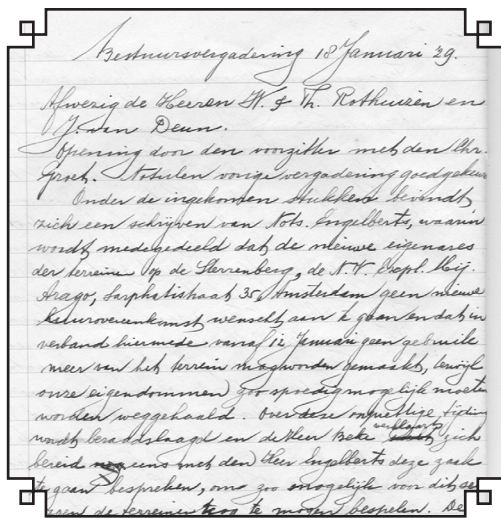 Bestuursvergadering 18 Januari 29.
Afwezig de Heeren W. & Th. Rothuizen en
J. van Deun.
Opening door den voorzitter met den Chr.
groet. Notulen vorige vergadering goedgekeur
Onder de ingekomen stukken bevindt
zich een schrijven van Nots. Engelberts, waarin
wordt medegedeeld dat de nieuwe eigenares
der terreine op de Sterrenberg, de N.V. Expl. Mij.
Arago, Sarphatistraat 35, Amsterdam geen nieuwe
huurovereenkomst wenscht aan te gaan en dat in
verband hiermede vanaf 12 Januari geen gebruik
meer van het terrein mag worden gemaakt, terwijl
onze eigendommen zoo spoedig mogelijk moeten
worden weggehaald. Over deze onprettige tijding
wordt beraadslaagd en de Heer Beke verklaart zich
bereid eens met den Heer Engelberts deze zaak
te gaan bespreken, om zoo mogelijk voor dit
de terreinen nog te mogen bespelen. De